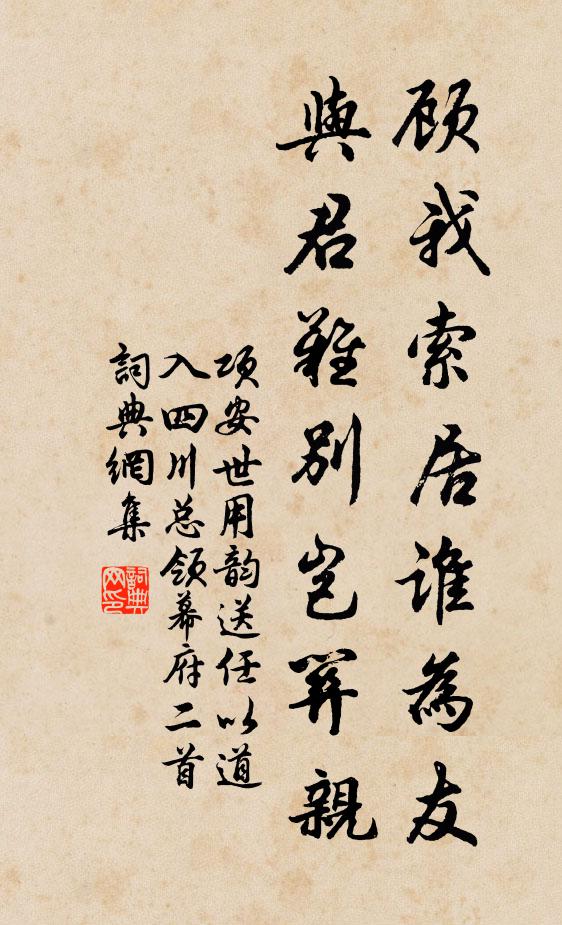 顾我索居誰為友
與君難别岂筭親
項安世用韵送任以道
入四川总领幕府二首
詞典網集
詞典网印